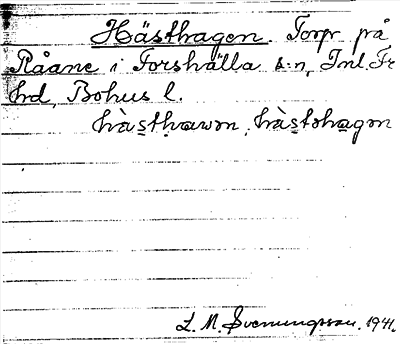 Hästhagen. Torp på
Råane i Forshälla s:n, Inl. Fr
hrd, Bohus l.
hàsthawən, hàstəhagən
L. M. Svenungsson. 1941.